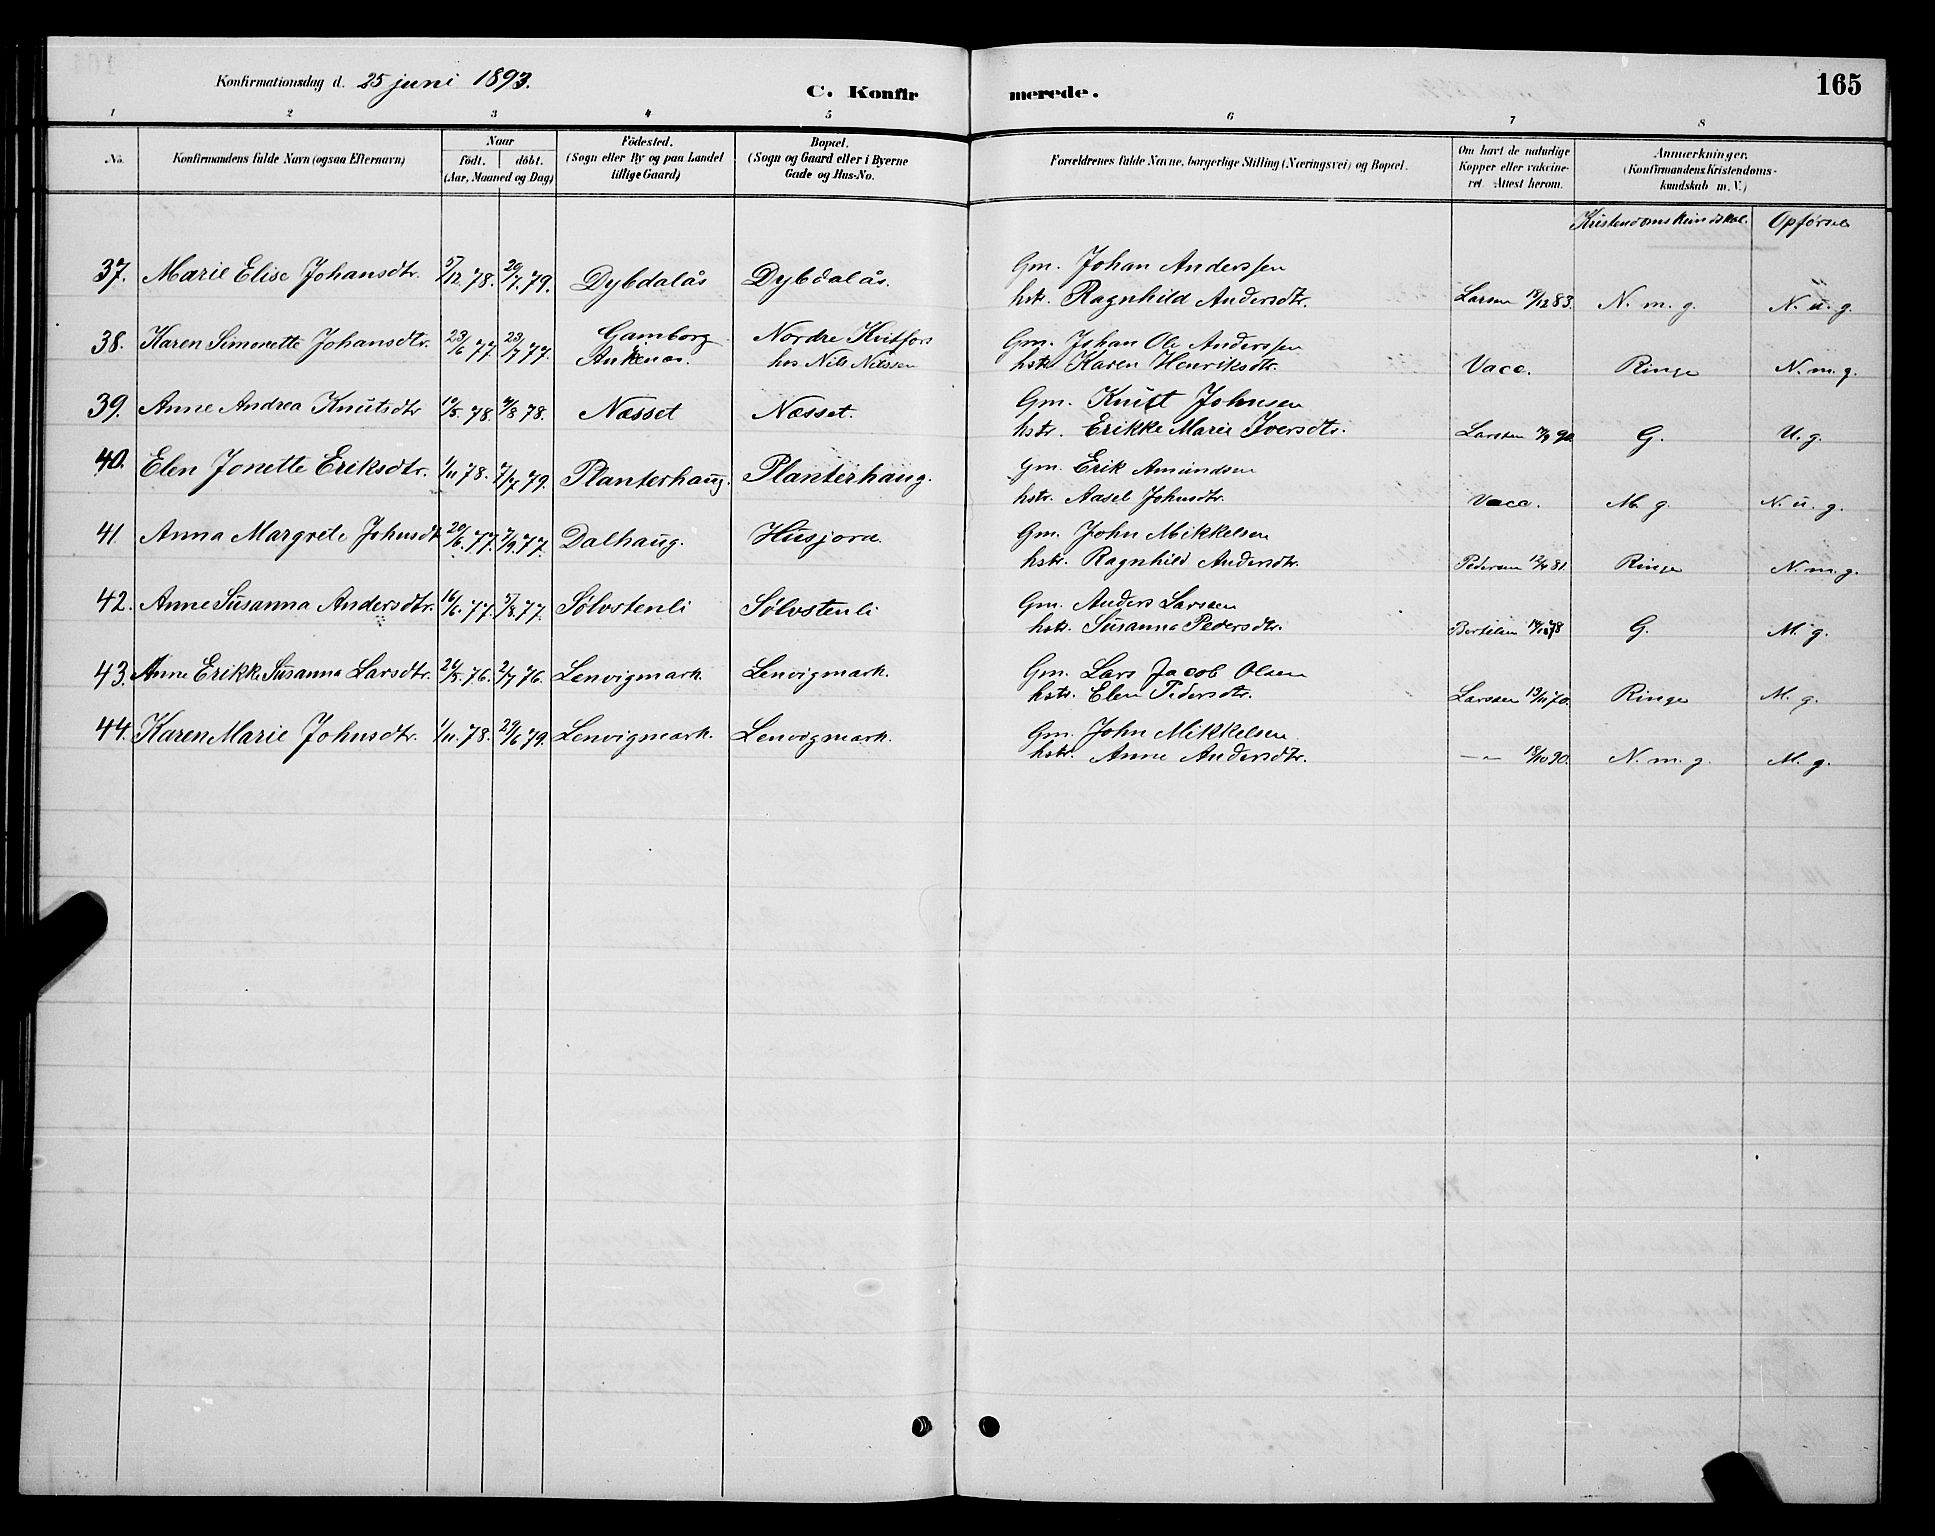 Konfirmationsdag d. 25 juni 1893.
C. Konfir
merede.
165
1 2 3 4 5 6 7 8
No.
Konfirmandens fulde Navn (ogsaa Efternavn)
Naar
født. døbt.
(Aar, Maaned og Dag)
Fødested.
(Sogn eller By og paa Landet
tillige Gaard)
Bopæl.
(Sogn og Gaard eller i Byerne
Gade og Hus-No.
Forældrenes fulde Navne, borgerlige Stilling (Næringsvei) og Bopæl.
Om havt de naturlige
Kopper eller vakcine-
ret. Attest herom.
Anmærkninger.
(Konfirmandens Kristendoms-
kundskab m. V.)
Kristendomskundskab. Opførsel
37. Marie Elise Johansdtr. 5/12.78. 20/7.79. Dybdalås Dybdalås. Gm. Johan Anderssen
hstr. Ragnhild Andersdtr. Larsen 18/12 83. N. m. g. N. u. g.
38. Karen Simonette Johansdtr. 23/6 77. 23/7 77. Gamborg Nordre Kvitfors Gm. Johan Ole Anderssen
Ankenæs. hos Nils Nilssen hstr. Karen Henriksdtr. Vacc. Ringe N. m. g.
39. Anne Andrea Knutsdtr 10/5. 78. 4/8 78. Næsset Næsset. Gm. Knut Johnsen
hstr. Erikke Marie Iversdtr. Larssen G. U. g.
40. Elen Jonette Eriksdtr. 1/11.78. 7/7.79. Planterhaug. Planterhaug. Gm. Erik Amundsen
hstr. Aasel Johnsdtr. Vacc. M. g. N. u. g.
41. Anna Margrete Johnsdt 20/6.77. 2/9.77. Dalhaug. Husjord. Gm. John Mikkelsen
hstr. Ragnhild Andersdtr. Pedersen Ringe N. m. g.
42. Anne Susanna Andersdtr. 16/6.77. 5/8.77. Sølvstenli Sølvstenli Gm. Anders Larssen
hstr. Susanna Pedersdtr. Bertelsen G. M. g.
43. Anne Erikke Susanna Larsdtr. 26/5.76. 2/7 76. Lenvigmark. Lenvigmark. Gm. Lars Jacob Olsen
hstr. Elen Pedersdtr. Larssen Ringe M. g.
44. Karen Marie Johnsdtr. 1/11.78. 29/6 79. Lenvigmark. Lenvigmark. Gm. John Mikkelsen
hstr. Anne Andersdtr. —"— 18/10 90. N. m. g. M. g.